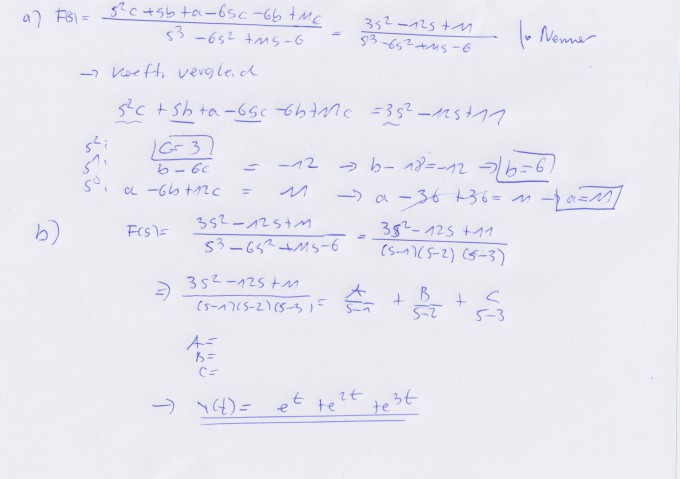 a) F(s) = (s²c + sb + a - 6sc - 6b + 11c) / (s³ - 6s² + 11s - 6) = (3s² - 12s + 11) / (s³ - 6s² + 11s - 6) | · Nenner
→ koeff. vergleich
s²c + sb + a - 6sc - 6b + 11c = 3s² - 12s + 11
s²: c = 3
s¹: b - 6c = -12 → b - 18 = -12 → b = 6
s⁰: a - 6b + 12c = 11 → a - 36 + 36 = 11 → a = 11
b) F(s) = (3s² - 12s + 11) / (s³ - 6s² + 11s - 6) = (3s² - 12s + 11) / ((s-1)(s-2)(s-3))
⇒ (3s² - 12s + 11) / ((s-1)(s-2)(s-3)) = A/(s-1) + B/(s-2) + C/(s-3)
A =
B =
C =
→ y(t) = e^t + e^2t + e^3t